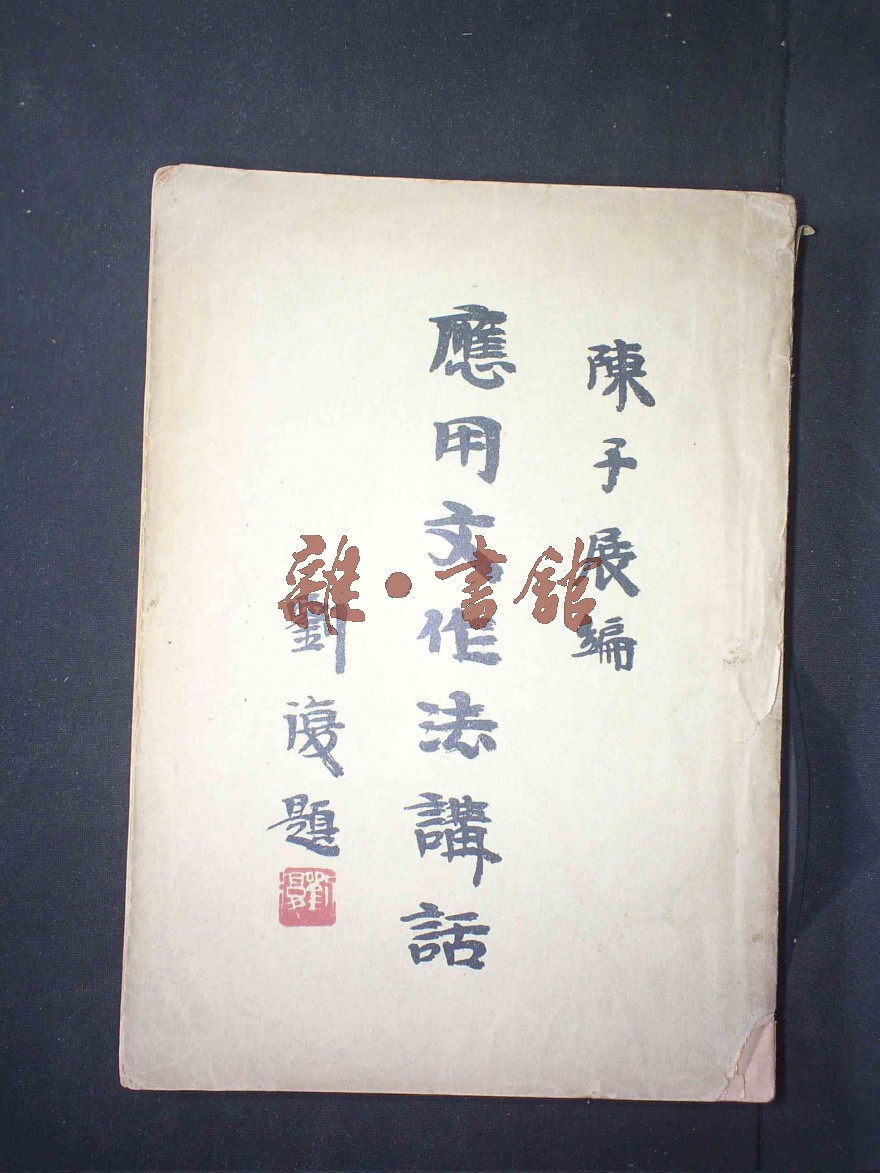 陳子展編
應用文作法講話
劉復題
劉復
雜·書館